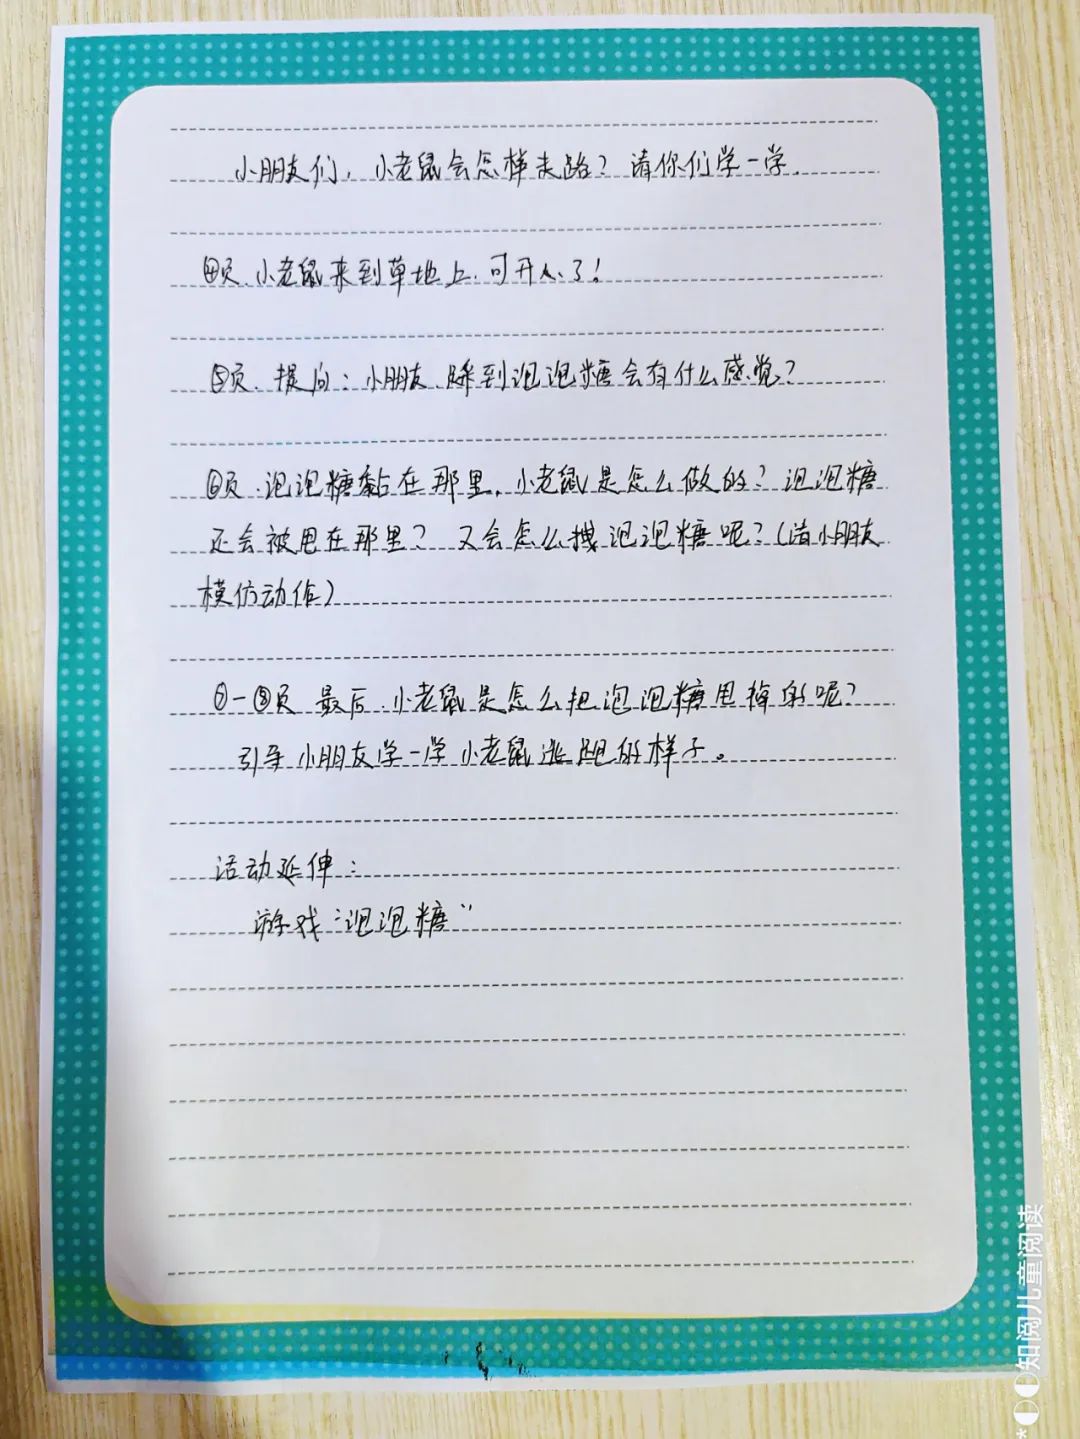 小朋友们，小老鼠会怎样走路？请你们学一学.
④页.小老鼠来到草地上.可开心了！
⑤页.提问：小朋友.踩到泡泡糖会有什么感觉？
⑥页.泡泡糖黏在那里.小老鼠是怎么做的？泡泡糖
还会被甩在那里？又会怎么拽泡泡糖呢？(请小朋友
模仿动作)
⑦-⑧页 最后.小老鼠是怎么把泡泡糖甩掉的呢？
引导小朋友学一学小老鼠逃跑的样子。
活动延伸：
游戏“泡泡糖”
知阅儿童阅读